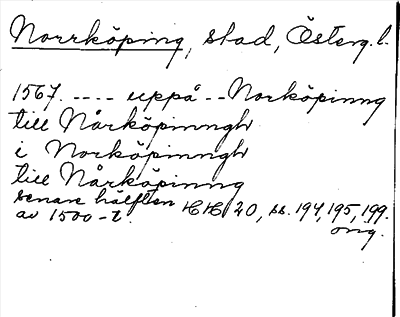 Norrköping, stad, Österg.l.
1567. ---- uppå -- Norköpinng
till Nårköpinngh
i Norköpinngh
till Nårköpinng
senare hälften
av 1500-t. HH 20, ss. 194, 195, 199.
orig.